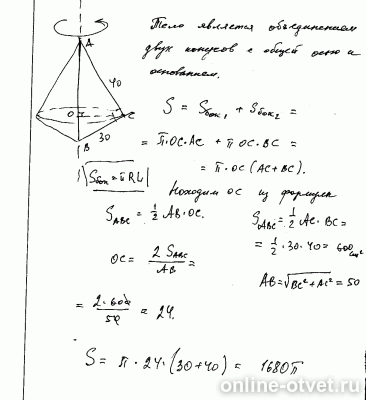 A
Тело является объединением
двух конусов с общей осью и
основанием.
40
O
C
30
B
S = Sбок₁ + Sбок₂ =
= π·OC·AC + π OC·BC =
= π·OC (AC+BC).
Sбок = πRL
Находим OC из формула
S_ABC = ½ AB·OC.
S_ABC = ½ AC·BC =
= ½·30·40 = 600 см²
OC = 2 S_ABC / AB =
AB = √(BC²+AC²) = 50
= 2·600 / 50 = 24.
S = π·24·(30+40) = 1680π
online-otvet.ru